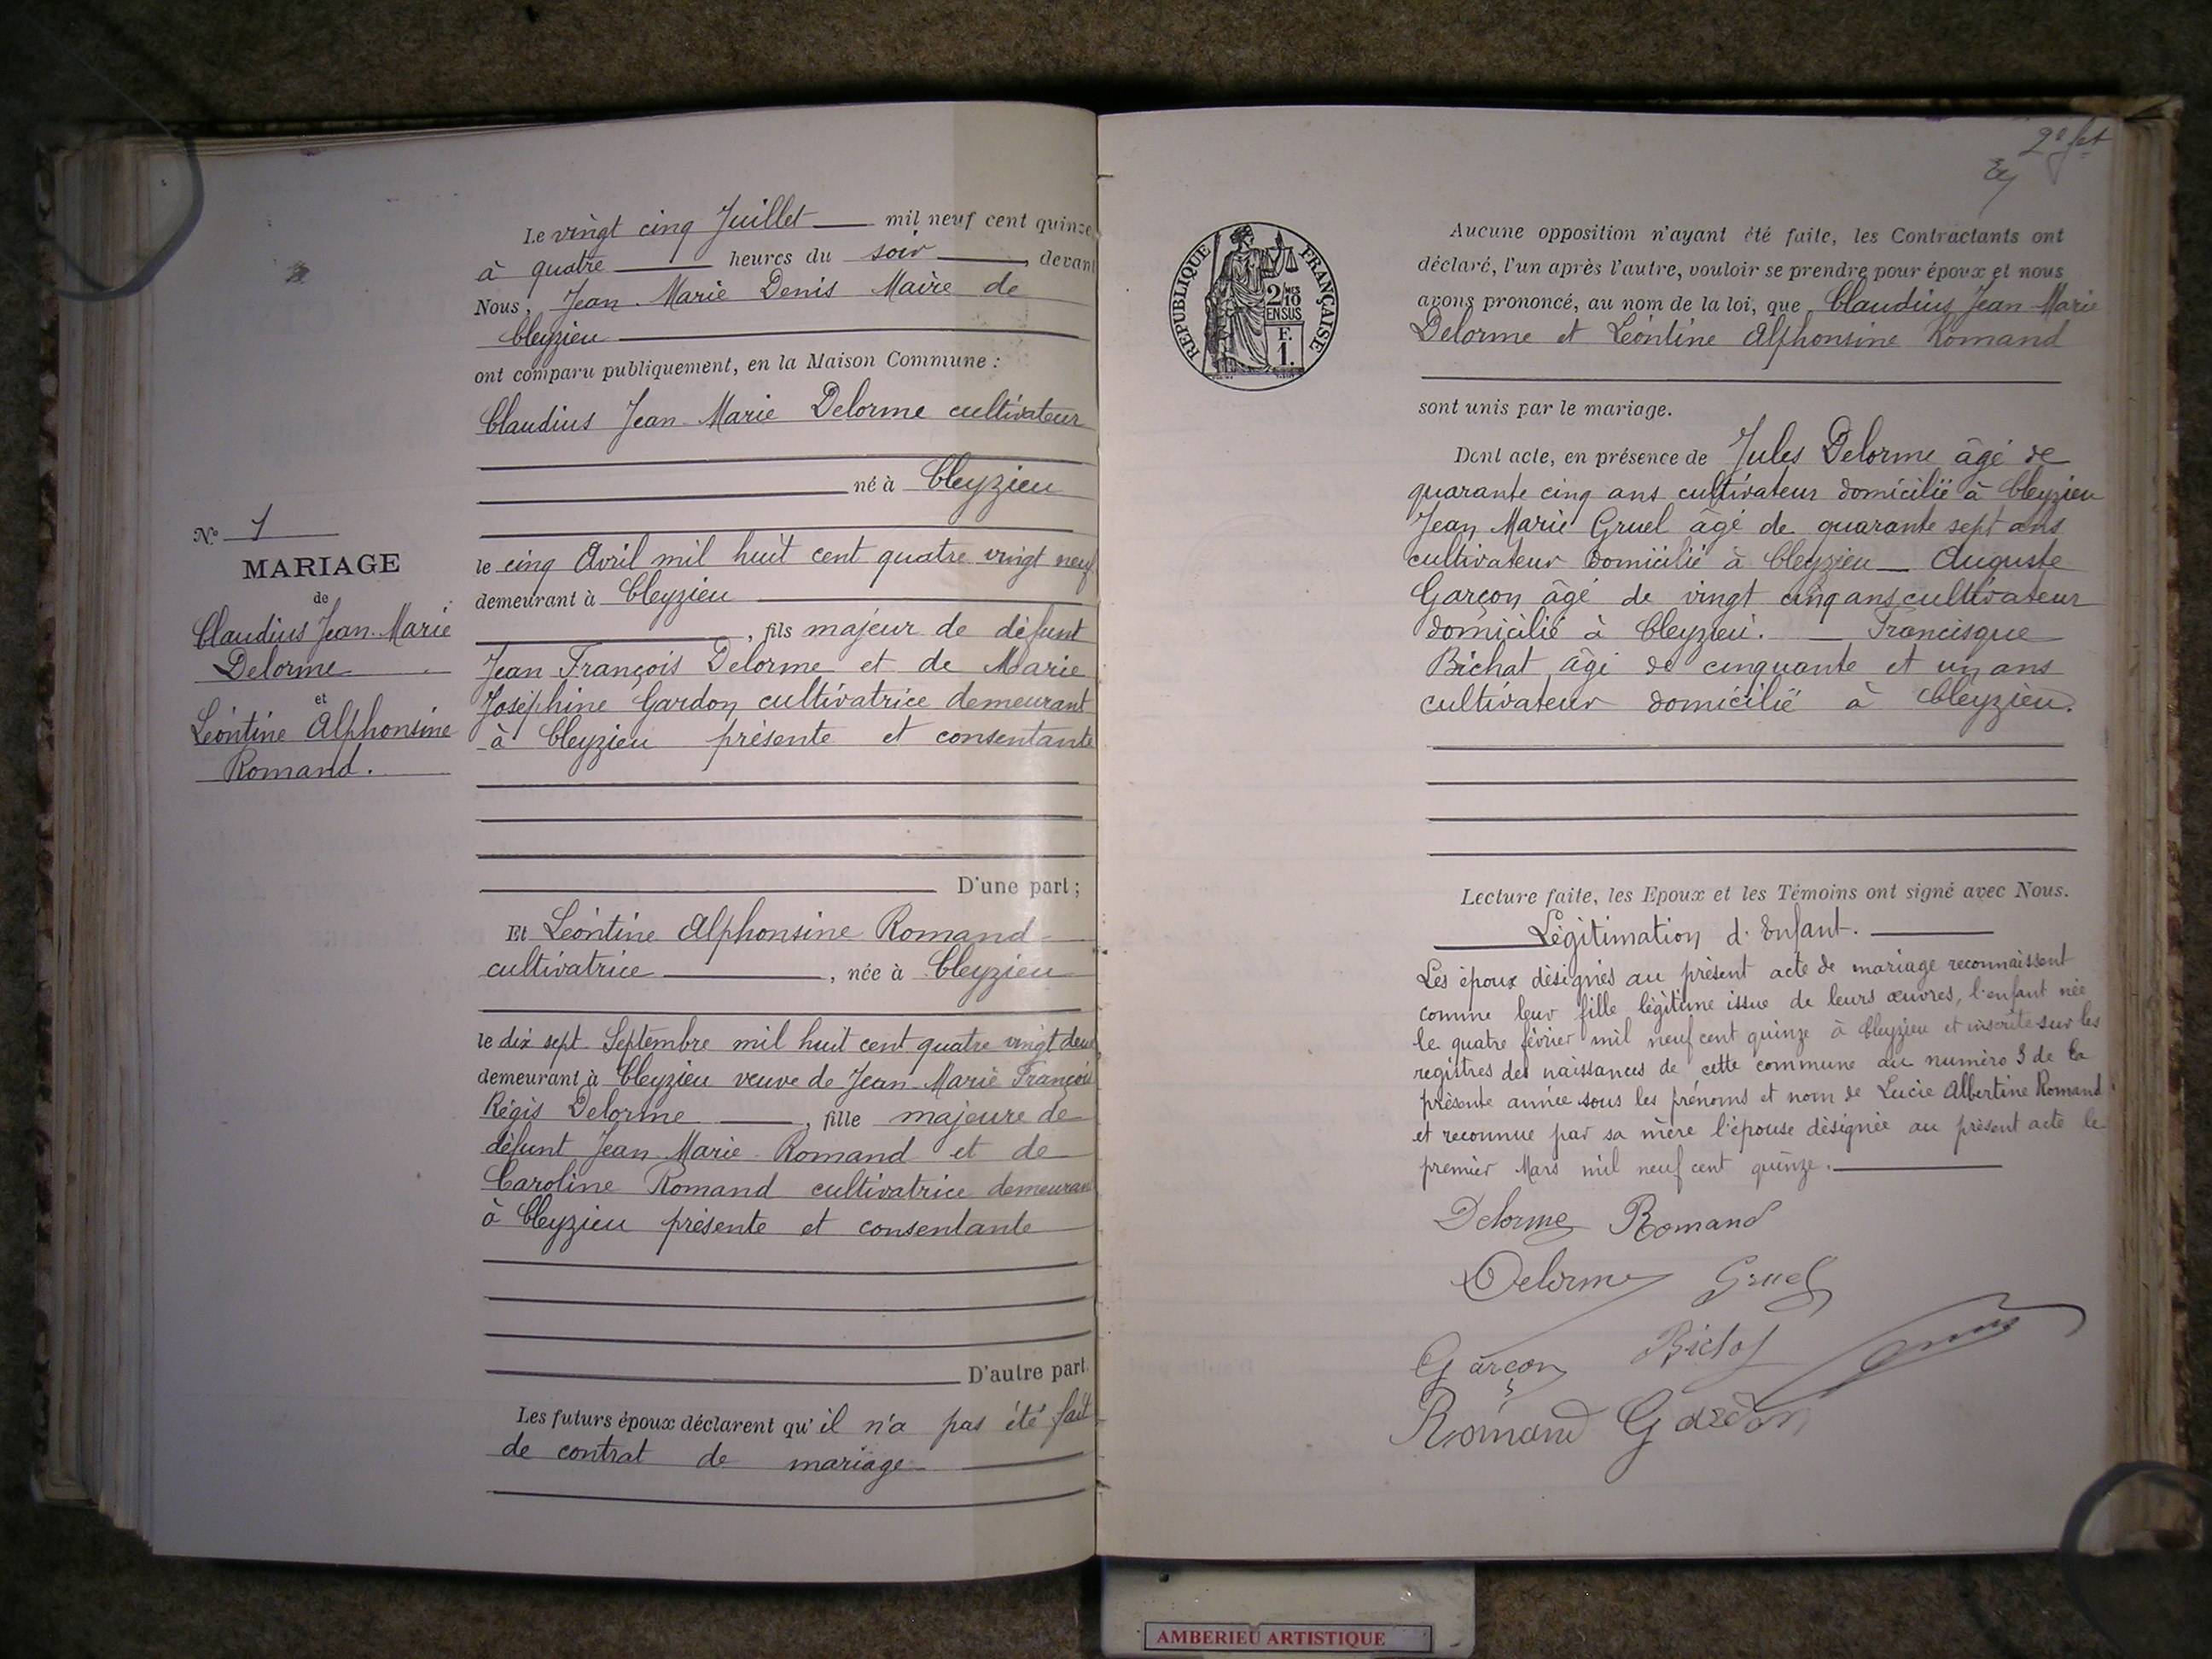 Le vingt cinq Juillet mil neuf cent quinze
à quatre heures du soir, devant
Nous, Jean Marie Denis Maire de
Cleyzieu
ont comparu publiquement, en la Maison Commune :
Claudius Jean-Marie Delorme cultivateur
né à Cleyzieu
le cinq Avril mil huit cent quatre vingt neuf
demeurant à Cleyzieu
, fils majeur de défunt
Jean François Delorme et de Marie
Joséphine Gardon cultivatrice demeurant
à Cleyzieu présente et consentante
D'une part ;
Et Léontine Alphonsine Romand
cultivatrice, née à Cleyzieu
le dix sept Septembre mil huit cent quatre vingt deux
demeurant à Cleyzieu veuve de Jean-Marie François
Régis Delorme, fille majeure de
défunt Jean-Marie Romand et de
Caroline Romand cultivatrice demeurant
à Cleyzieu présente et consentante
D'autre part.
Les futurs époux déclarent qu'il n'a pas été fait
de contrat de mariage
N° 1
MARIAGE
de
Claudius Jean-Marie
Delorme
et
Léontine Alphonsine
Romand.
2e
REPUBLIQUE FRANÇAISE
2/10MES
EN SUS
F.
1.
Aucune opposition n'ayant été faite, les Contractants ont
déclaré, l'un après l'autre, vouloir se prendre pour époux et nous
avons prononcé, au nom de la loi, que Claudius Jean-Marie
Delorme et Léontine Alphonsine Romand
sont unis par le mariage.
Dont acte, en présence de Jules Delorme âgé de
quarante cinq ans cultivateur domicilié à Cleyzieu
Jean Marie Gruel âgé de quarante sept ans
cultivateur domicilié à Cleyzieu — Auguste
Garçon âgé de vingt cinq ans cultivateur
domicilié à Cleyzieu. — Francisque
Bichat âgé de cinquante et un ans
cultivateur domicilié à Cleyzieu.
Lecture faite, les Epoux et les Témoins ont signé avec Nous.
Légitimation d'Enfant.
Les époux désignés au présent acte de mariage reconnaissent
comme leur fille légitime issue de leurs œuvres, l'enfant née
le quatre février mil neuf cent quinze à Cleyzieu et inscrite sur les
registres des naissances de cette commune au numéro 3 de la
présente année sous les prénoms et nom de Lucie Albertine Romand
et reconnue par sa mère l'épouse désignée au présent acte le
premier Mars mil neuf cent quinze.
Delorme Romand
Delorme Gruel
Garçon Bichat
Romand Gardon
AMBERIEU ARTISTIQUE